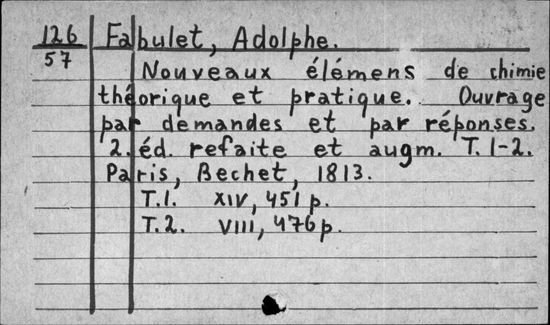 126
57
Fabulet, Adolphe.
Nouveaux élémens de chimie
théorique et pratique. Ouvrage
par demandes et par réponses.
2. éd. refaite et augm. T. 1-2.
Paris, Bechet, 1813.
T.1. XIV, 451 p.
T.2. VIII, 476 p.